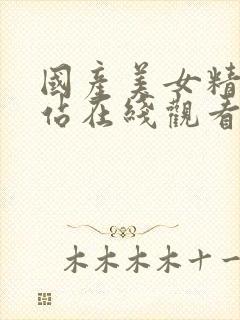 國產美女精
佔在綫觀看
木木木木十一